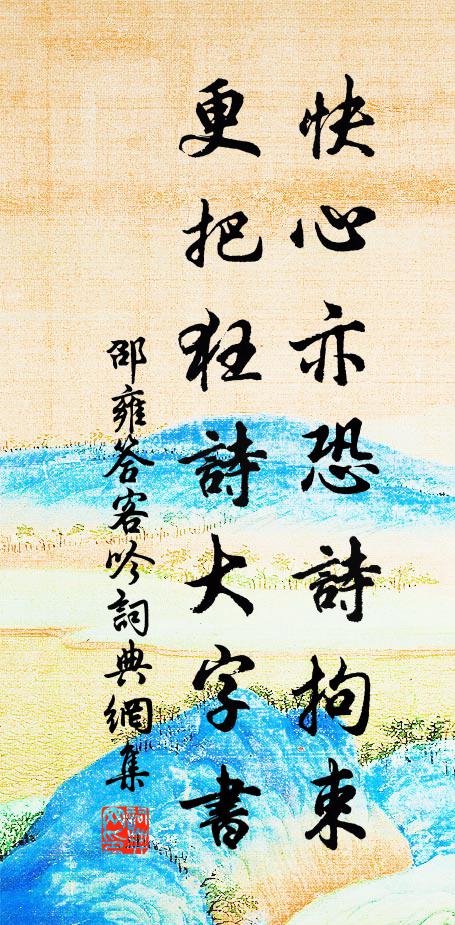 快心亦恐詩拘束
更把狂詩大字書
邵雍答客吟詞典網集